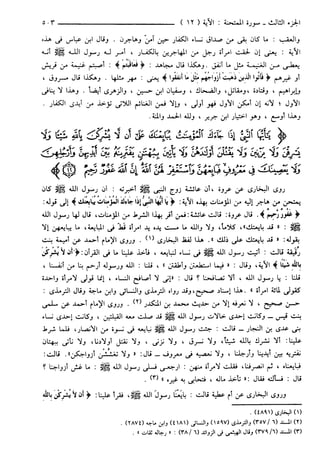 الجزء الثالث ـ سورة الممتحنة : الآية ( ١٢ ) ٥٠٣
والعقب : ما كان بقي من صداق نساء الكفار حين آمن وهاجرن . وقال ابن عباس في هذه
الآية : يعني إن لحقت امرأة رجل من المهاجرين بالكفار ، أمر له رسول الله ﷺ أنه
يعطى من الغنيمة مثل ما أنفق . وهكذا قال مجاهد : ﴿فعاقبتم﴾ : أصبتم غنيمة من قريش
أو غيرهم ﴿فآتوا الذين ذهبت أزواجهم مثل ما أنفقوا﴾ يعني : مهر مثلها . وهكذا قال مسروق ،
وإبراهيم ، وقتادة ، ومقاتل ، والضحاك ، وسفيان ابن حسين ، والزهري أيضاً . وهذا لا ينافي
الأول ؛ لأنه إن أمكن الأول فهو أولى ، وإلا فمن الغنائم اللاتي تؤخذ من أيدي الكفار .
وهذا أوسع ، وهو اختيار ابن جرير ، ولله الحمد والمنة .
يَا أَيُّهَا النَّبِيُّ إِذَا جَاءَكَ الْمُؤْمِنَاتُ يُبَايِعْنَكَ عَلَىٰ أَن لَّا يُشْرِكْنَ بِاللَّهِ شَيْئًا وَلَا
يَسْرِقْنَ وَلَا يَزْنِينَ وَلَا يَقْتُلْنَ أَوْلَادَهُنَّ وَلَا يَأْتِينَ بِبُهْتَانٍ يَفْتَرِينَهُ بَيْنَ أَيْدِيهِنَّ وَأَرْجُلِهِنَّ وَلَا
يَعْصِينَكَ فِي مَعْرُوفٍ فَبَايِعْهُنَّ وَاسْتَغْفِرْ لَهُنَّ اللَّهَ إِنَّ اللَّهَ غَفُورٌ رَّحِيمٌ
روى البخاري عن عروة ، أن عائشة زوج النبي ﷺ أخبرته : أن رسول الله ﷺ كان
يمتحن من هاجر إليه من المؤمنات بهذه الآية : ﴿يا أيها النبي إذا جاءك المؤمنات يبايعنك﴾ إلى قوله :
﴿غفور رحيم﴾ . قال عروة : قالت عائشة : فمن أقر بهذا الشرط من المؤمنات ، قال لها رسول الله
ﷺ : « قد بايعتك» ، كلاماً ، ولا والله ما مست يده يد امرأة قط في المبايعة ، ما يبايعهن إلا
بقوله : « قد بايعتك على ذلك » . هذا لفظ البخاري (١) . وروى الإمام أحمد عن أميمة بنت
رقيقة قالت : أتيت رسول الله ﷺ في نساء لنبايعه ، فأخذ علينا ما في القرآن : ﴿أن لا يشركن
بالله شيئاً﴾ الآية ، وقال : « فيما استطعتن وأطقتن » ، قلنا : الله ورسوله أرحم بنا من أنفسنا ،
قلنا : يا رسول الله ، ألا تصافحنا ؟ قال : «إني لا أصافح النساء ، إنما قولي لامرأة واحدة
كقولي لمائة امرأة » . هذا إسناد صحيح ، وقد رواه الترمذي والنسائي وابن ماجة وقال الترمذي :
حسن صحيح ، لا نعرفه إلا من حديث محمد بن المنكدر (٢) . وروى الإمام أحمد عن سلمى
بنت قيس ـ وكانت إحدى خالات رسول الله ﷺ قد صلت معه القبلتين ، وكانت إحدى نساء
بني عدي بن النجار ـ قالت : جئت رسول الله ﷺ نبايعه في نسوة من الأنصار ، فلما شرط
علينا : ألا نشرك بالله شيئاً ، ولا نسرق ، ولا نزني ، ولا نقتل أولادنا ، ولا نأتي ببهتان
نفتريه بين أيدينا وأرجلنا ، ولا نعصيه في معروف ـ قال : « ولا تغششن أزواجكن» . قالت :
فبايعناه ، ثم انصرفنا ، فقلت لامرأة منهن : ارجعي فسلي رسول الله ﷺ : ما غش أزواجنا ؟
قال : فسألته فقال : «تأخذ ماله ، فتحابي به غيره » (٣) .
وروى البخاري عن أم عطية قالت : بايعنا رسول الله ﷺ ، فقرأ علينا : ﴿أن لا يشركن بالله
(١) البخاري (٤٨٩١) .
(٢) المسند (٣٥٧/٦) والترمذي (١٥٩٧) والنسائي (٤١٨١) وابن ماجه (٢٨٧٤) .
(٣) المسند (٣٧٩/٦) وقال الهيثمي في الزوائد (٣٨/٦) : « رجاله ثقات » .